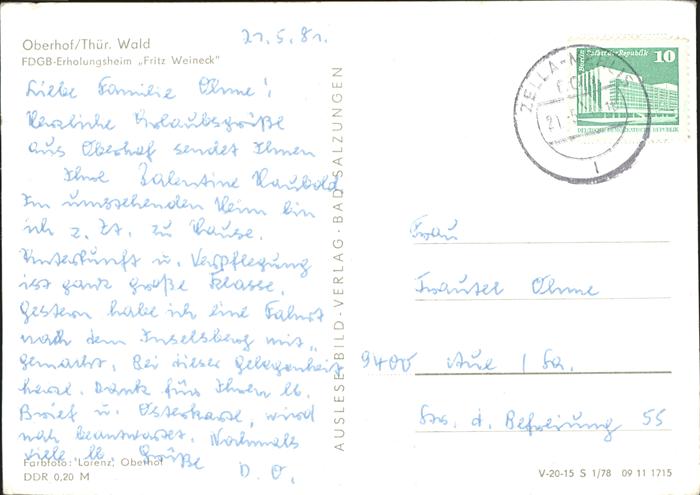 21.5.81.
Oberhof/Thür. Wald
FDGB-Erholungsheim „Fritz Weineck"
Liebe Familie Ohme!
Herzliche Urlaubsgrüße
aus Oberhof sendet Ihnen
Ihre Valentine Haubold
Im umstehenden Heim bin
ich z. Zt. zu Hause.
Unterkunft u. Verpflegung
ist ganz große Klasse.
Gestern habe ich eine Fahrt
nach dem Inselsberg mit-
gemacht. Bei dieser Gelegenheit
herzl. Dank für Ihren lb.
Brief u. Osterkarte, wird
noch beantwortet. Nochmals
viele lb. Grüße
D. O.
Farbfoto: Lorenz, Oberhof
DDR 0,20 M
AUSLESE-BILD-VERLAG · BAD SALZUNGEN
Berlin, Palast der Republik
10
DEUTSCHE DEMOKRATISCHE REPUBLIK
ZELLA-MEHLIS
Frau
Frautel Ohme
9400 Aue / Sa.
Str. d. Befreiung 55
V-20-15 S 1/78 09 11 1715